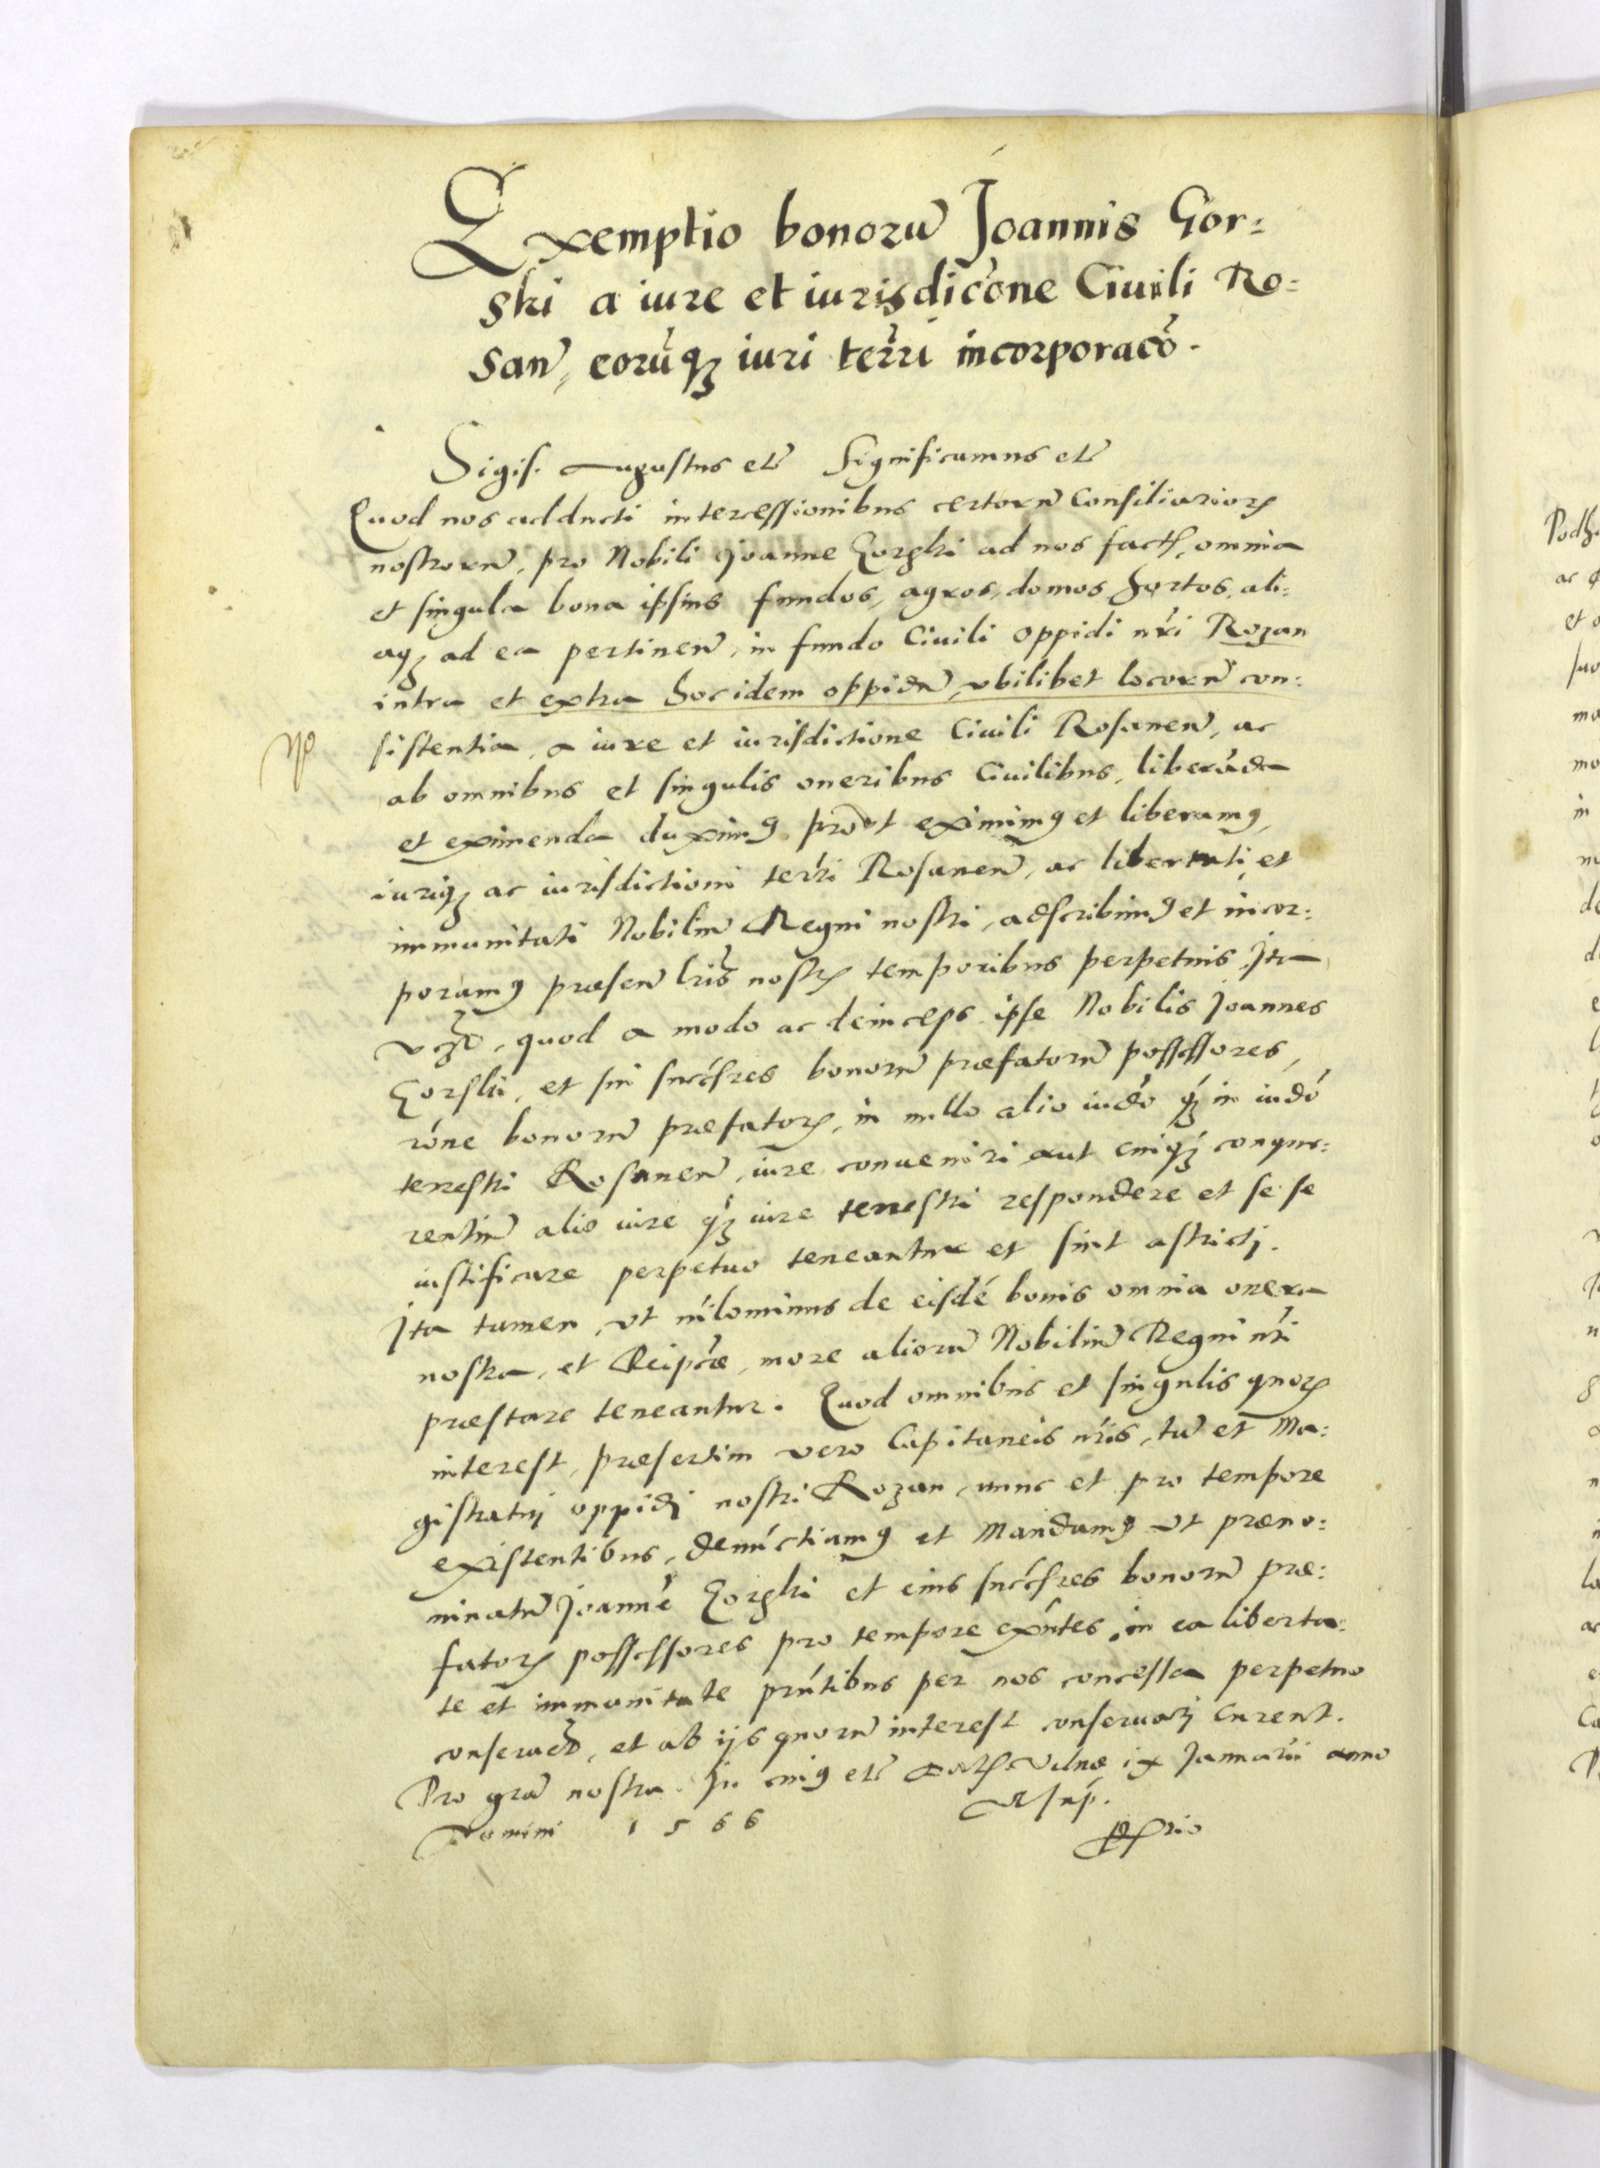 Exemptio bonorũ Joannis Gor:
ski a iure et iurisdicõne Ciuili Ro:
san̄, eorũqȝ iuri terri incorporacõ.
Sigis. Augustus etc̄ Significamus etc̄
Quod nos adducti intercessionibus certorũ Consiliarioꝝ
nostrorũ, pro Nobili Joanne Gorski ad nos fact., omnia
et singula bona ipsius fundos, agros, domos, hortos, ali:
aqȝ ad ea pertinen̄, in fundo Ciuili oppidi nr̃i Rozan
intra et extra hoc idem oppidũ, vbilibet locorũ con:
sistentia, a iure et iurisdictione Ciuili Rosanen̄, ac
ab omnibus et singulis oneribus Ciuilibus, liberãda
et eximenda duximꝰ prout eximimꝰ et liberamꝰ,
iuriqȝ ac iurisdictioni terri Rosanen̄, ac libertati, et
immunitati Nobiliũ Regni nostri, adscribimꝰ et incor:
poramꝰ præsen̄ lris nostꝝ temporibus perpetuis Ita
vȝ, quod a modo ac deinceps ipse Nobilis Joannes
Gorski, et sui succ̃sores bonorũ præfatorũ possessores,
rõne bonorũ præfatoꝝ, in nullo alio iudõ qȝ in iudõ
terrestri Rosanen̄, iure conueniri aut cuiqȝ conque:
rentiũ alio iure qȝ iure terrestri respondere et se se
iustificare perpetuo teneantur et sint astricti.
Ita tamen, vt nĩlominus de eisdẽ bonis omnia onera
nostra, et Reipcæ, more aliorũ Nobiliũ Regni nr̃i
præstare teneantur. Quod omnibus et singulis quoꝝ
interest, præsertim vero Capitaneis nr̃is, tũ et Ma:
gistratui oppidi nostri Rozan, nunc et pro tempore
existentibus, denũctiamꝰ et Mandamꝰ vt præno:
minatũ Joannẽ Gorski et eius succ̃sres bonorũ præ:
fatoꝝ possessores pro tempore exñtes, in ea liberta:
te et immunitate prñtibus per nos concessa perpetuo
conseruẽt, et ab ijs quorũ interest conseruari curent.
Pro gra nostra. In cuiꝰ etc̄ Datꝝ Vilnæ ix Januarii anno
Domini 1566 vt sup.